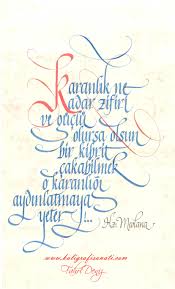 Karanlık ne
kadar zifiri
ve ölçüsü
olursa olsun
bir kibrit
çakabilmek
o karanlığı
aydınlatmaya
yeter !...
Hz. Mevlana
www.kaligrafisanati.com
Fahri Deniz